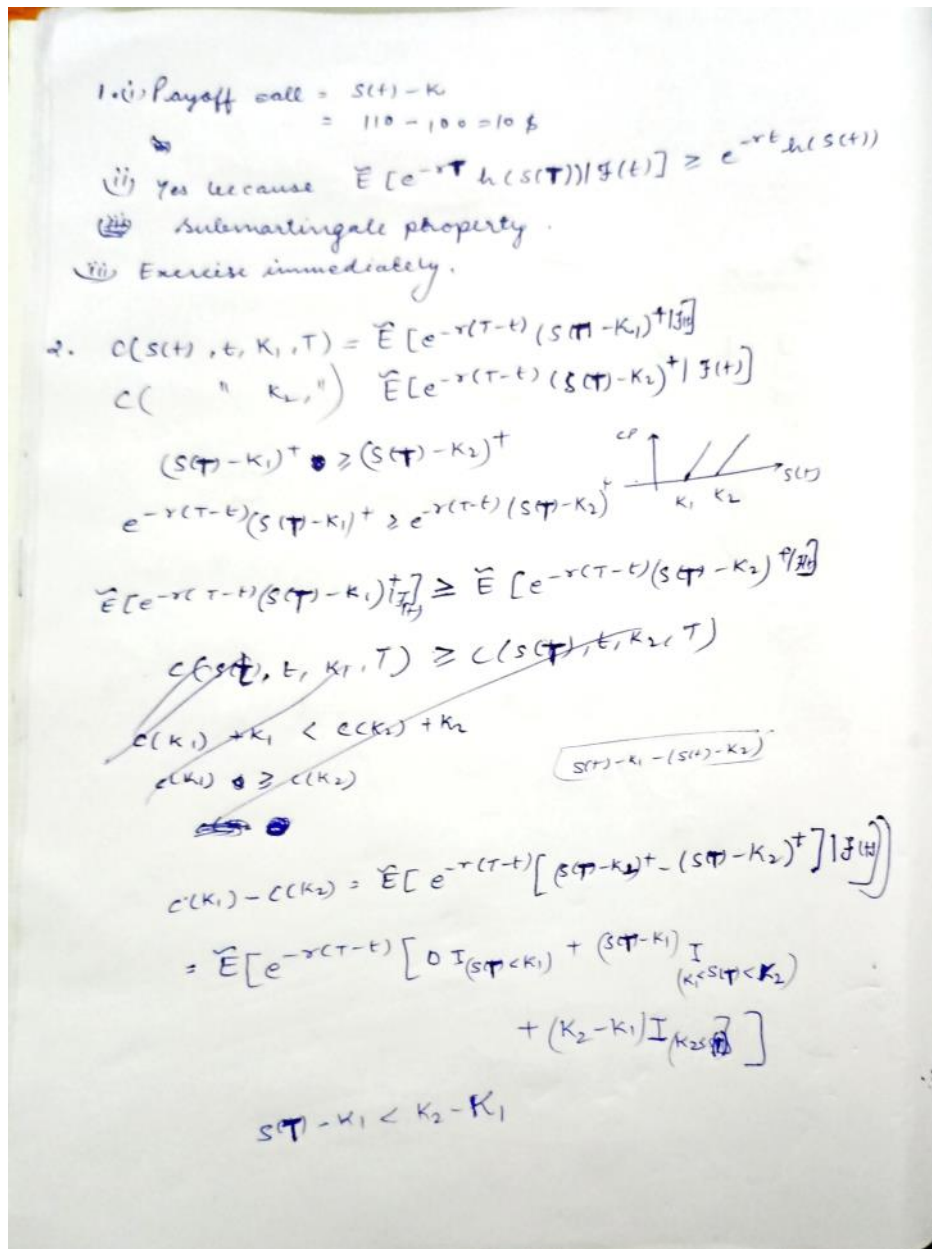 1.(i) Payoff call = S(t) - K
= 110 - 100 = 10 $
(ii) Yes because Ẽ [e^{-rT} h(S(T))|ℱ(t)] ≥ e^{-rt} h(S(t))
submartingale property.
(iii) Exercise immediately.
2. C(S(t), t, K₁, T) = Ẽ [e^{-r(T-t)} (S(T) - K₁)⁺|ℱ(t)]
C( " K₂, ") Ẽ [e^{-r(T-t)} (S(T) - K₂)⁺ | ℱ(t)]
(S(T) - K₁)⁺ ≥ (S(T) - K₂)⁺
CP
S(t)
K₁ K₂
e^{-r(T-t)} (S(T) - K₁)⁺ ≥ e^{-r(T-t)} (S(T) - K₂)⁺
Ẽ [e^{-r(T-t)} (S(T) - K₁)⁺|ℱ(t)] ≥ Ẽ [e^{-r(T-t)} (S(T) - K₂)⁺|ℱ(t)]
C(S(t), t, K₁, T) ≥ C(S(T), t, K₂, T)
C(K₁) + K₁ < C(K₂) + K₂
C(K₁) ≥ C(K₂)
S(t) - K₁ - (S(t) - K₂)
C(K₁) - C(K₂) = Ẽ [e^{-r(T-t)} [(S(T) - K₁)⁺ - (S(T) - K₂)⁺] | ℱ(t)]
= Ẽ [e^{-r(T-t)} [0 I_{(S(T) < K₁)} + (S(T) - K₁) I_{(K₁ < S(T) < K₂)}
+ (K₂ - K₁) I ] ]
S(T) - K₁ < K₂ - K₁